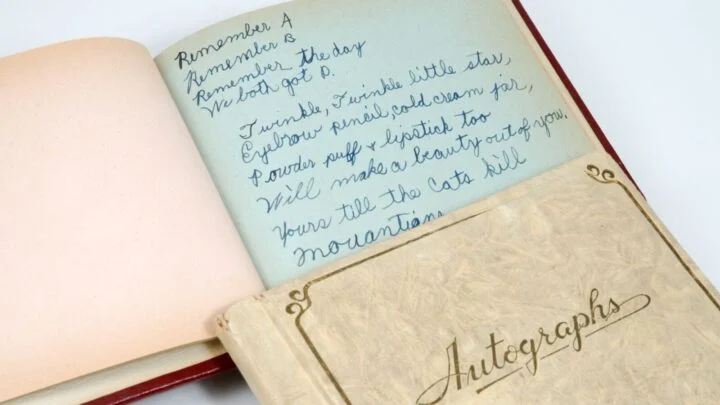 Remember A
Remember B
Remember the day
We both got D.
Twinkle, Twinkle little star,
Eyebrow pencil, cold cream jar,
Powder puff & lipstick too
Will make a beauty out of you.
Yours till the Cats kill
Autographs